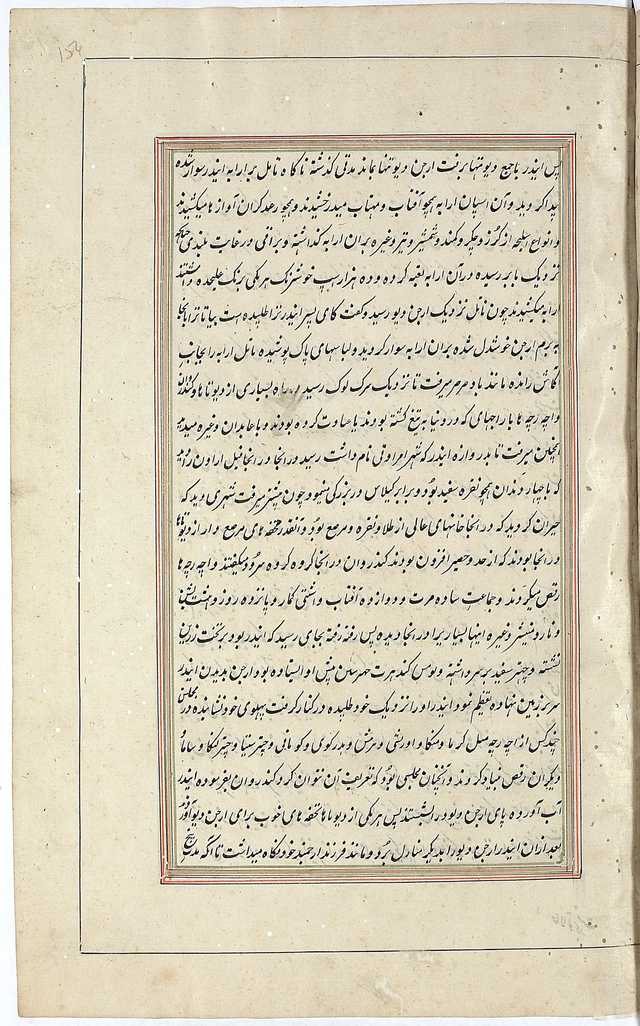 154
پس ایندر با جمیع دیوتها برفت ارجن دیو تنها بماند مدتی گذشته ناگاه ماتل بر ارابه ایندر سوار شده
پیدا گردید و آن اسپان ارابه همچو آفتاب و مهتاب میدرخشیدند و همچو رعد گران آواز ها میکشیدند
و انواع اسلحه از گرز و چکر و کمند و شمشیر و تیر و غیره بران ارابه گذاشته و بیرقی در غایت بلندی
نزدیک بابر رسیده و در آن ارابه تعبیه کرده و ده هزار اسپ خوش رنگ هر یکی برنگ علیحده داشتند
ارابه میکشیدند چون ماتل نزدیک ارجن دیو رسید و گفت که ای پسر ایندر ترا طلبیده است بیا تا ترا بآنجا
به برم ارجن خوشدل شده بران ارابه سوار گردید و لباسهای پاک پوشیده ماتل ارابه را بجانب
رانده مانند باد صرصر میرفت تا نزدیک سرگ لوک رسید در راه بسیاری از دیوتاها و
و اچهرجها با راجهای که در دنیا به تیغ کشته بودند یا عبادت کرده بودند و با عابدان و غیره میدید
همچنین میرفت تا بدروازه ایندر که شهر امراوتی نام داشت رسید در آنجا فیل ایراون را دید
که با چهار دندان همچو نقره سفید بود و برابر کیلاس در بزرگی مینمود چون پیشتر میرفت شهری دید که
حیران گردید که در آنجا خانهای عالی از طلا و نقره و مرصع بود و آنقدر تحفه های مرصع دار از دیوتاها
در آنجا بودند که از حد و حصر افزون بودند گندروان در آنجا گروه گروه سرود میگفتند و اچهرجها
رقص میکردند و جماعت ساده و مرت و دوازده آفتاب و اشنی کمار و پانزده روز و هشت بسن
و نارد و غیره اینها بسیاریرا در آنجا دیده پس رفته رفته بجای رسید که ایندر بود بر تخت زرین
نشسته و چتر سفید بر سر داشته پیش او ایستاده بود ارجن بدیدن ایندر
سر بر زمین نهاده تعظیم نمود ایندر او را نزدیک خود طلبیده در کنار گرفت پهلوی خود نشانیده در مجلس
چند کس از اچهرجها مثل و مینکا و اورشی و
دیگران رقص بنیاد کردند و آنچنان مجلسی بود که تعریف آن نتوان کرد گندروان بفرموده ایندر
آب آورده پای ارجن دیو را شستند پس هر یکی از دیوتاها تحفه های خوب برای ارجن دیو آوردند
بعد ازان ایندر ارجن دیو را بدیگر منازل برد و مانند فرزند ارجمند خود نگاه میداشت تا آنکه مدت پنج